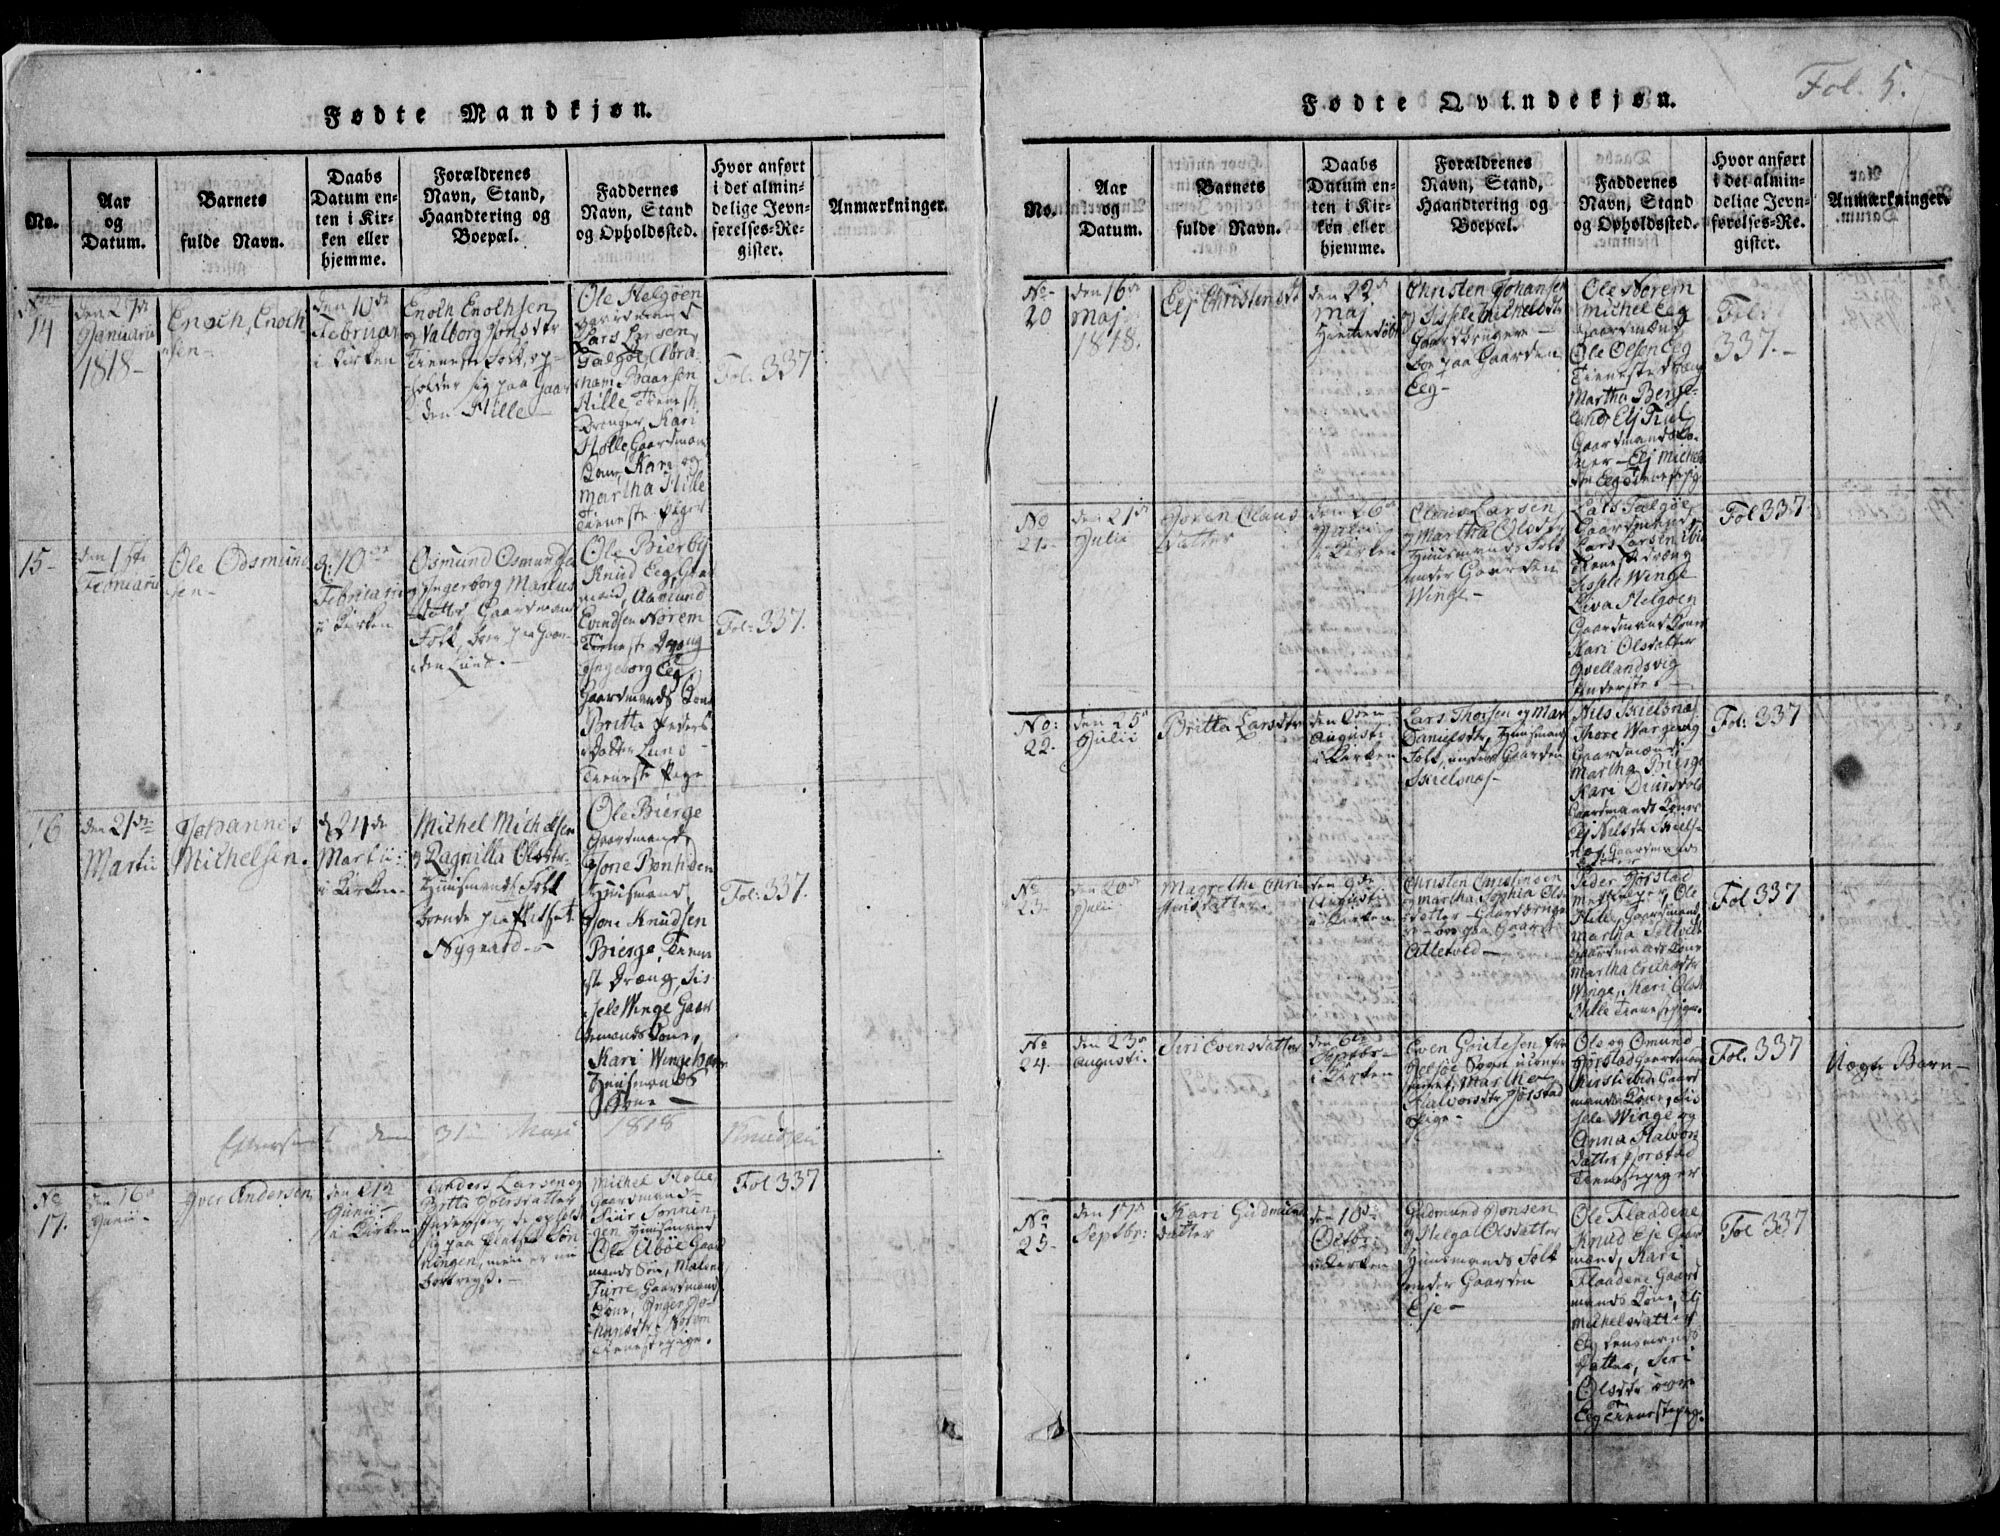 Fol. 5.
Fødte Mandkjøn.
No.
Aar
og
Datum.
Barnets
fulde Navn.
Daabs
Datum en-
ten i Kir-
ken eller
hjemme.
Forældrenes
Navn, Stand,
Haandtering og
Boepæl.
Faddernes
Navn, Stand
og Opholdssted.
Hvor anført
i det almin-
delige Jevn-
førelses-Re-
gister.
Anmærkninger.
14
den 27de
Januarii
1818-
Enoch, Enoch
sen-
den 10de
Februar
i Kirken
Enoch Enochsen
og Valborg Jonsdtr
Tieneste Folk, op-
holder sig paa Gaar
den Hille-
Ole Helgøen
Gaardmand
Lars Larsen
Talgøe, Abra-
ham Baarsen
Hille Tieneste
Drenger, Kari
Holle, Gaardmands
Kone, Kari og
Martha Hille
Tieneste Piger
Fol: 337
15-
den 1ste
Februarii
Ole Odsmund
sen-
d: 10de
Februarii
i Kirken
Osmund Osmundsen
og Ingerborg Marcus
datter Gaardmands
Folk, boe paa Gaar-
den Lund.-
Ole Bierby
Knud Eeg, Gaard
mænd, Aamund
Evindsen Norem
Tieneste Dreng
Ingeborg Eeg
Gaardmands Kone
Britte Peders
Datter Lund
Tieneste Pige
Fol: 337.
16
den 21de
Martii
Johannes
Michelsen.
d. 24de
Martii:
i Kirken-
Michel Michelsen
og Ragnilla Olsdtr
Huusmands Folk
boende paa Pladset
Nygaard.-
Ole Bierge
Gaardmand
Jone Bonhiden
Huusmand
Jone Knudsen
Bierge, Tiene
ste Dræng, Sis
sele Winge Gaar
dmands Kone,
Kari Winge
Huusmands
Kone-
Fol: 337.
Efterseet den 31 Maii 1818 Knudsen
No
17.
den 16de
Junii-
Iver Andersen
den 21de
Junii-
i Kirken
Anders Larsen og
Britta Iversdatter
Michel Holle
Gaardmand
Ole Aböe Gaard
mands Søn, Malene
Furre, Gaardmands
Kone, Inger Jo-
Tienestepige.
Fol 337
Fødte Qvindekjøn.
No.
Aar
og
Datum.
Barnets
fulde Navn.
Daabs
Datum en-
ten i Kir-
ken eller
hjemme.
Forældrenes
Navn, Stand,
Haandtering og
Boepæl.
Faddernes
Navn, Stand
og Opholdssted.
Hvor anført
i det almin-
delige Jevn-
førelses-Re-
gister.
Anmærkninger.
No-
20
den 16de
Maj
1818.
Elj Christensdt
den 22de
Maj
Hiemmedøbt
Christen Johansen
og Sissele Michelsdtr
Gaardbruger
boe paa Gaarden
Eeg-
Ole Norem
Michel Eeg
Gaardmænd
Ole Olsen Eeg
Tienestedræng
Martha Berge-
land, Elj Tiul
Gaardmands Ko-
ner- Elj Michels
dtr Eeg Tienestepig
Fol:
337.-
No
21.
den 21de
Julii
Joren Claus
datter
den 26de
Julii
i Kirken
Claus Larsen
og Martha Olsdtr
Huusmands Folk
under Gaarden
Winge-
Lars Talgøe,
Gaardmand
Lars Larsen ibid
Tienestedræng
Sissele Winge
Siva Helgøen
Gaardmands Koner
Kari Olsdatter
Qvellandsvig
Inderste.-
Fol 337
No:
22.
den 25de
Julii
Britta Larsdtr
den 2den
Augusti
i Kirken
Lars Thorsen og Mar
Danielsdtr, Huusmands
Folk, under Gaarden
Skielsnas-
Nils Skielsnas
Thore Wargevig
Gaardmænd,
Martha Bierge
Gaardmands Koner
Elj Nilsdtr Skiels-
nas, Gaardmands
Datter
Fol: 337
No
23.
den 20de
Julii
Magrethe Chri-
stensdatter.
den 9de
Augusti
i Kirken
Christen Christensen
og Martha Sophia Ols
datter- Gaardbruger
boe paa Gaard
Atlevold-
Peder Jørstad
Hille, Gaardmand,
Gaardmands Kone
Martha Erichsdtr
Winge, Kari Olsdt
Hille Tienestepige.
Fol 337
No
24.
den 23de
Augusti.
Siri Evensdatter
den 6te
Septbr-
i Kirken
Even Goutesen, fra
Halvorsdtr Jørstad
Pige-
Ole og Omund
Jørstad Gaardmænd
Kirsti ibid: Gaard
mands Kone, Sis
sele Winge og
Anna Halvors
datter Jørstad
Tienestepiger
Fol: 337
Uægte Barn-
No
25-
den 17de
Septbr:
Kari Gudmunds
datter
den 10de
Octbr:
i Kirken
Gudmund Jonsen
og Helga Olsdatter
Huusmands Folk
under Gaarden
Eje-
Ole Flaadene
Knud Eje Gaard
mænd, Kari
Flaadene Gaard
mands Kone, Elj
Michelsdatter
Eeg Lensmands
Datter, Siri
Olsdtr øvre
Eeg Tienestepige.
Fol 337